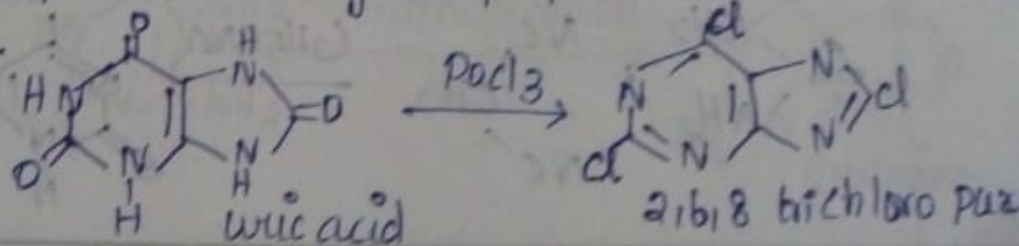 O
H
N
HN
O
O
N
H
N
H
uric acid
POCl3
Cl
N
N
Cl
Cl
N
N
2,6,8 trichloro pur